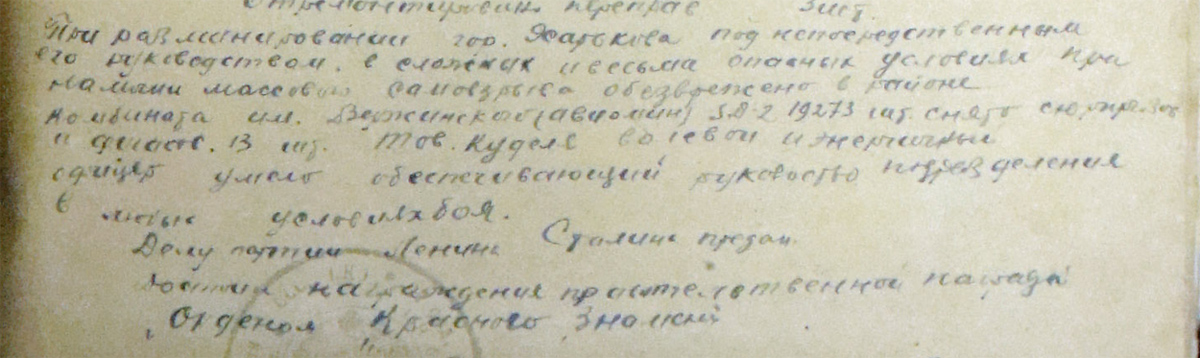 Отремонтировано переправ 3 шт.
При разминировании гор. Харькова под непосредственным
его руководством. в сложных и весьма опасных условиях при
наличии массового самовзрыва обезврежено в районе
комбината им. Дзержинского (авиомин) SД-2 19273 шт. снято сюрпризов
и 13 шт. Тов. Кудель волевой и энергичный
офицер умело обеспечивающий руководство подразделения
в любых условиях боя.
Делу партии Ленина Сталина предан.
Достоин награждения правительственной награды
"Орденом Красного Знамени